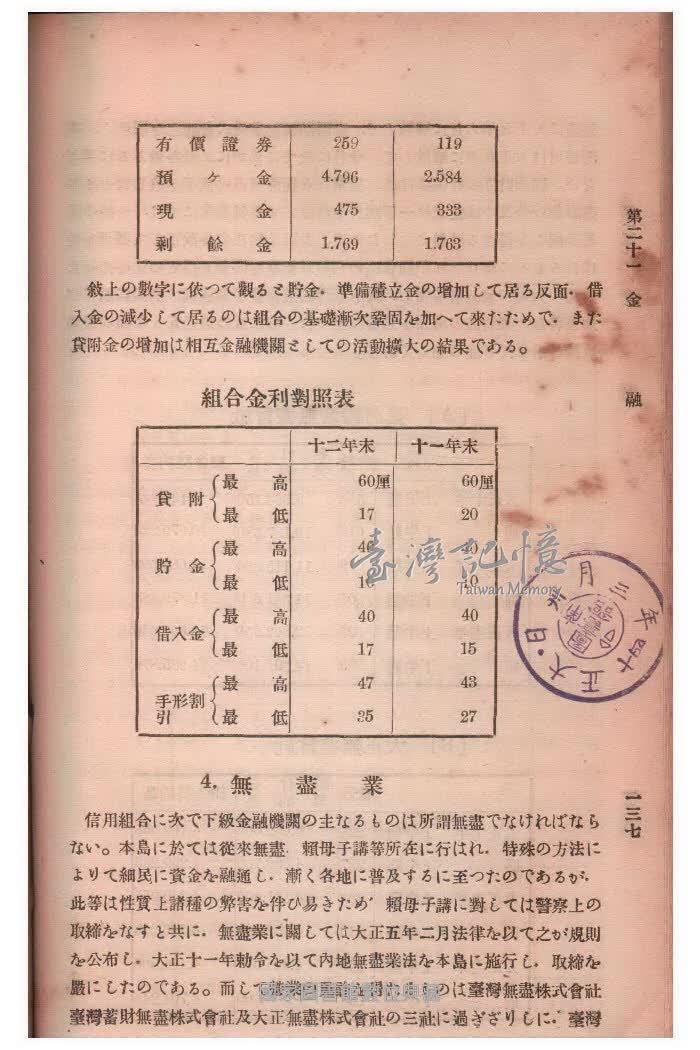 有價證券 259 119
預ヶ金 4.796 2.584
現金 475 333
剩餘金 1.769 1.763
敍上の數字に依つて觀ると貯金．準備積立金の增加して居る反面．借
入金の減少して居るのは組合の基礎漸次鞏固を加へて來たためで．また
貸附金の增加は相互金融機關としての活動擴大の結果である。
組合金利對照表
十二年末 十一年末
貸附 最高 60厘 60厘
最低 17 20
貯金 最高
最低
借入金 最高 40 40
最低 17 15
手形割引 最高 47 43
最低 35 27
4．無盡業
信用組合に次で下級金融機關の主なるものは所謂無盡でなければなら
ない。本島に於ては從來無盡．賴母子講等所在に行はれ．特殊の方法に
よりて細民に資金を融通し．漸く各地に普及するに至つたのであるが．
此等は性質上諸種の弊害を伴ひ易きため．賴母子講に對しては警察上の
取締をなすと共に．無盡業に關しては大正五年二月法律を以て之が規則
を公布し．大正十一年勅令を以て內地無盡業法を本島に施行し．取締を
嚴にしたのである。而して
のは臺灣無盡株式會社
臺灣蓄財無盡株式會社及大正無盡株式會社の三社に過ぎざりしに．臺灣
第二十一 金融
一三七
臺灣記憶
Taiwan Memory
大正十四年三月
日